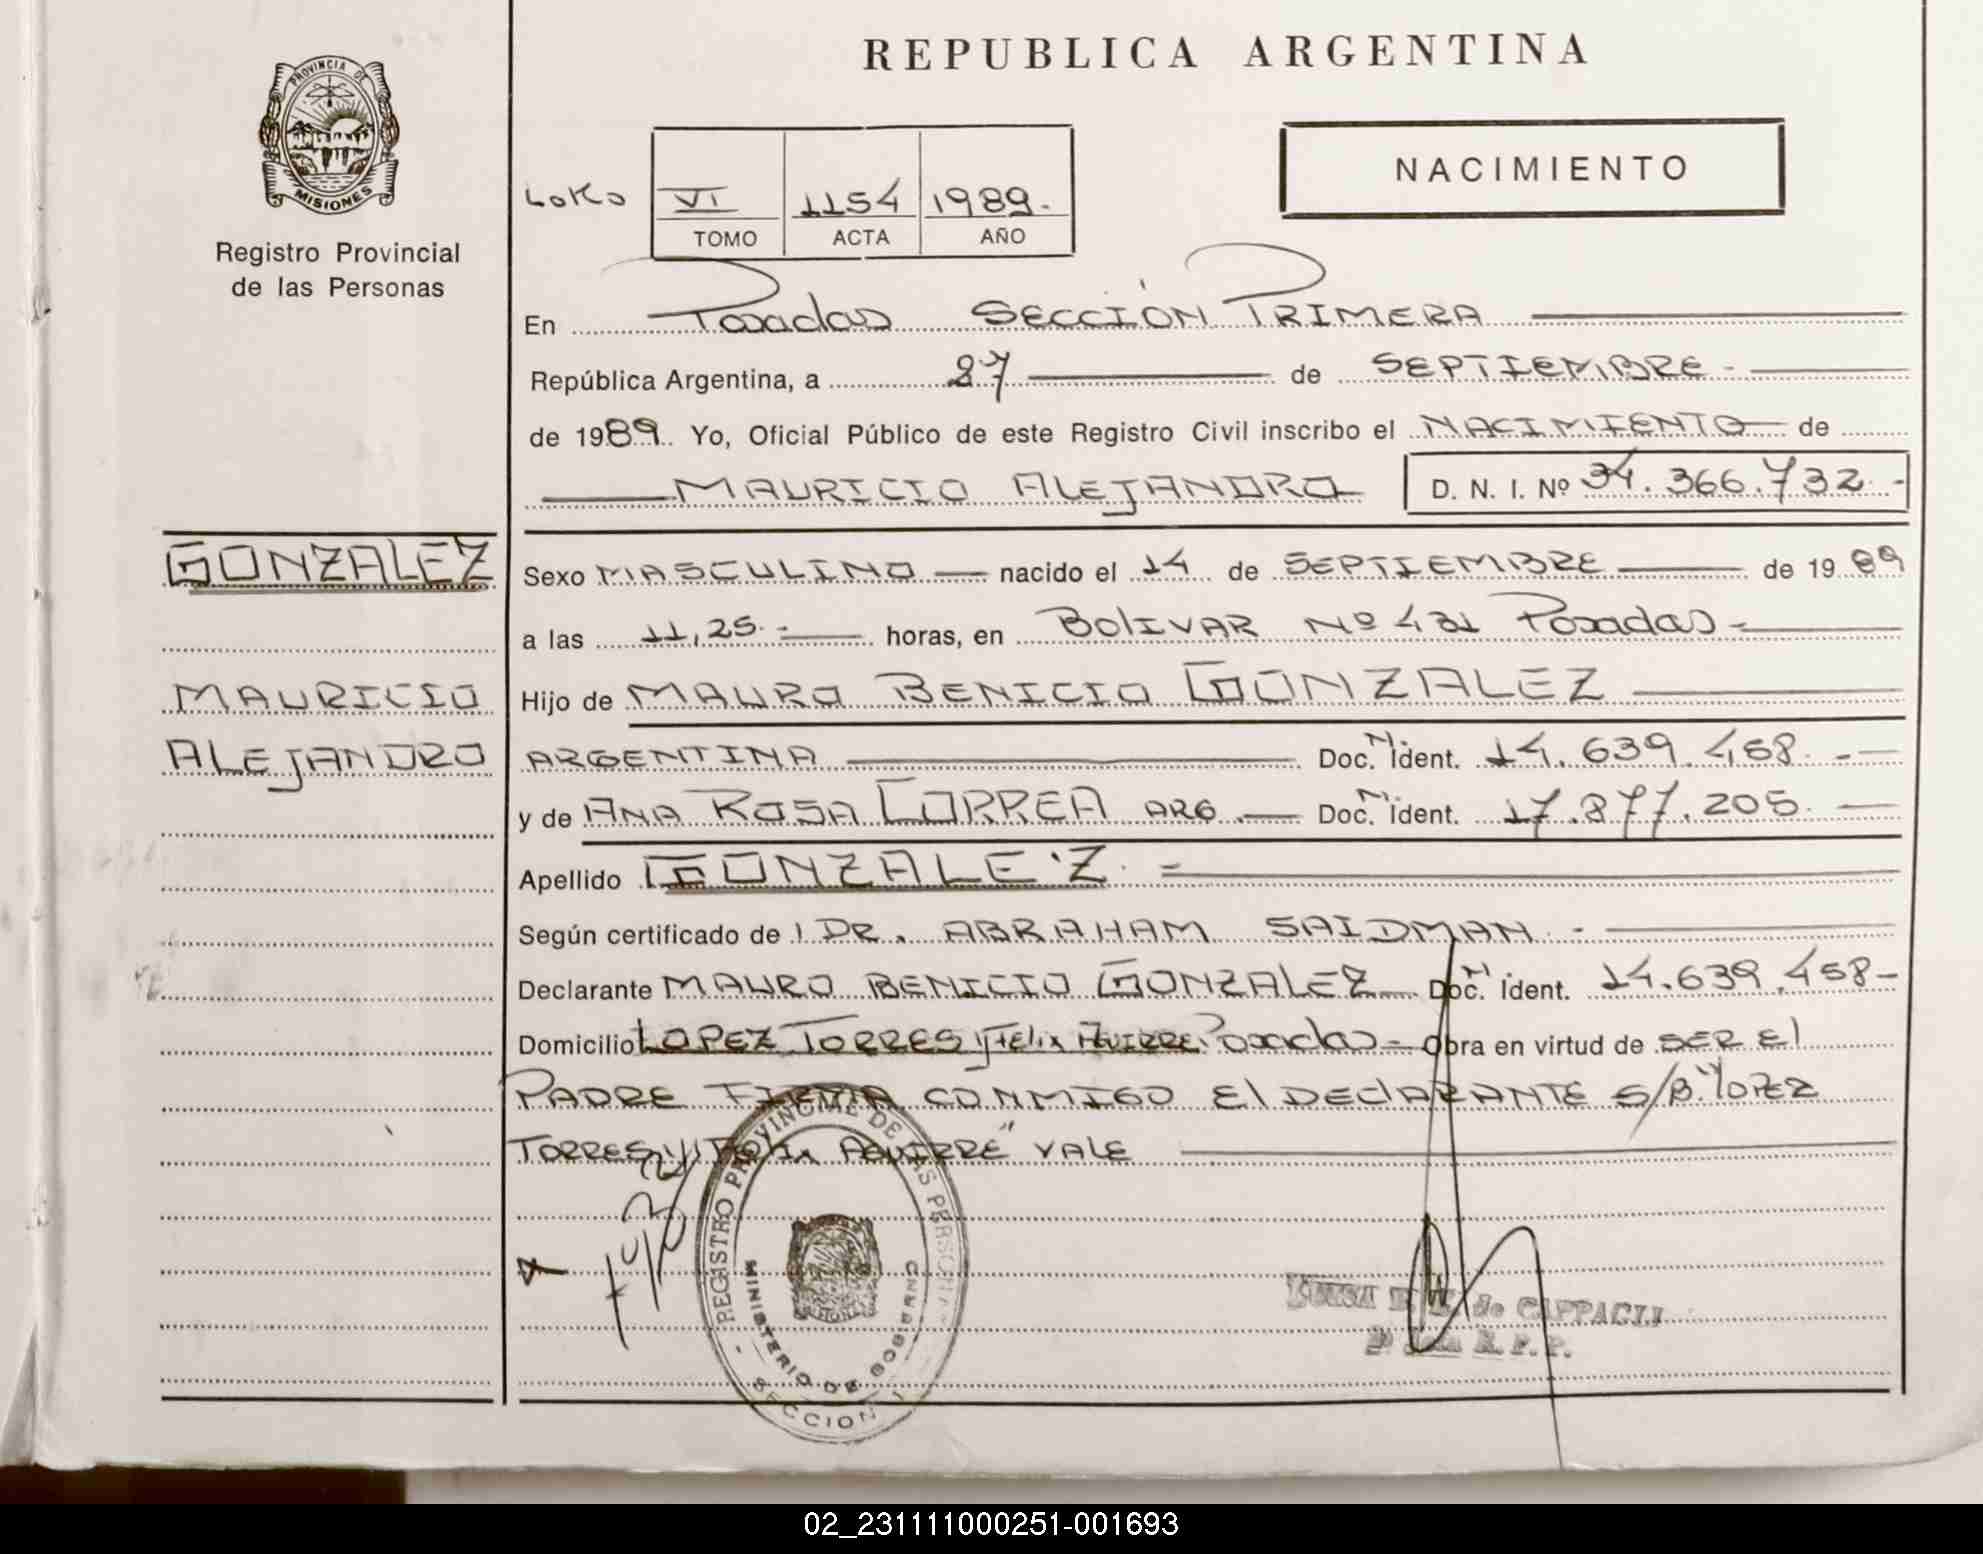 REPUBLICA ARGENTINA
PROVINCIA DE
MISIONES
Registro Provincial
de las Personas
NACIMIENTO
VI 1154 1989.
TOMO ACTA AÑO
En Posadas SECCIÓN PRIMERA
República Argentina, a 27 de SEPTIEMBRE -
de 1989. Yo, Oficial Público de este Registro Civil inscribo el NACIMIENTO de
MAURICIO ALEJANDRO D. N. I. Nº 34.366.732.-
GONZALEZ
MAURICIO
ALEJANDRO
Sexo MASCULINO nacido el 14 de SEPTIEMBRE de 1989
a las 11,25.- horas, en BOLIVAR Nº 431 Posadas-
Hijo de MAURO BENICIO GONZALEZ
ARGENTINA Doc. N. ident. 14.639.458.-
y de ANA ROSA CORREA ARG. Doc. N. ident. 17.877.205.
Apellido GONZALEZ.-
Según certificado de DR. ABRAHAM SAIDMAN.-
Declarante MAURO BENICIO GONZALEZ Doc. N ident. 14.639.458-
Domicilio LOPEZ TORRES y Felix AGUIRRE Posadas- Obra en virtud de SER El
PADRE FIRMA CONMIGO El DEClARANTE S/B. "lOPEZ
TORRES y Felix AGUIRRE" VALE
REGISTRO PROVINCIAL DE LAS PERSONAS
MINISTERIO DE GOBIERNO
SECCION 1
de CAPPAGLI
R. P. P.
02_231111000251-001693